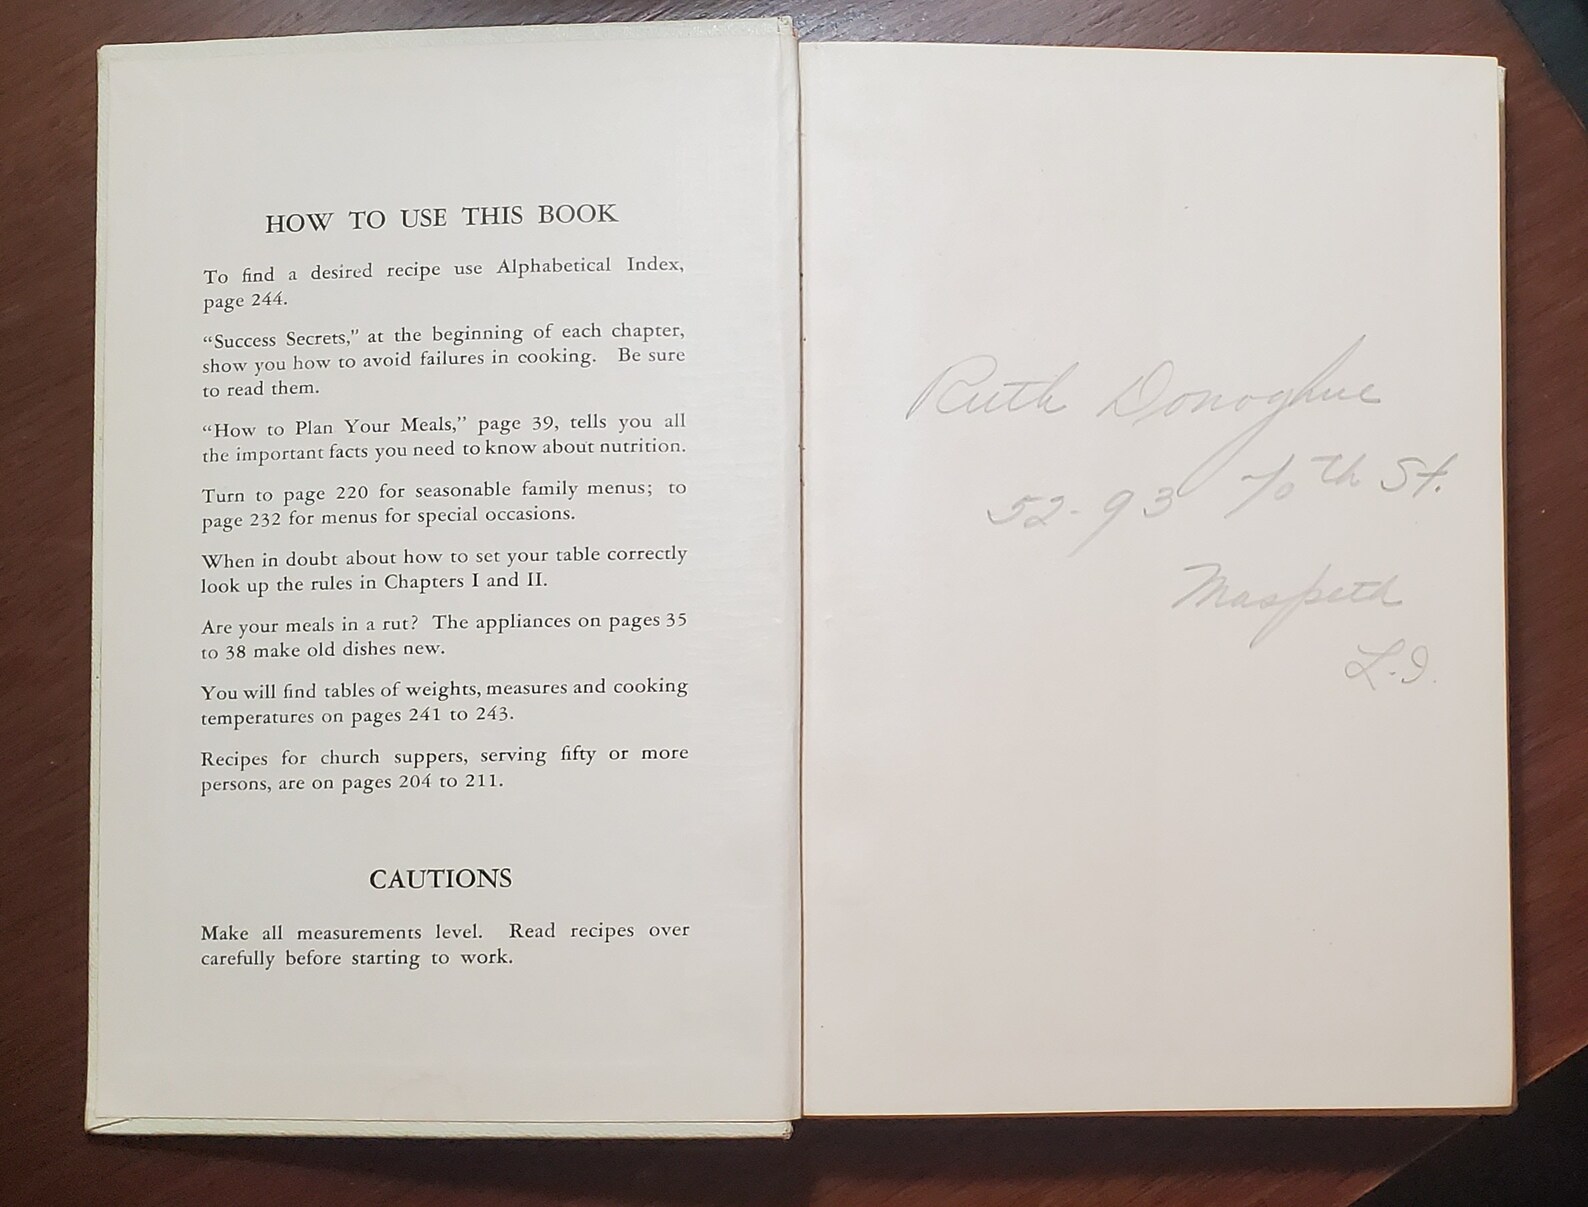 HOW TO USE THIS BOOK
To find a desired recipe use Alphabetical Index,
page 244.
“Success Secrets,” at the beginning of each chapter,
show you how to avoid failures in cooking. Be sure
to read them.
“How to Plan Your Meals,” page 39, tells you all
the important facts you need to know about nutrition.
Turn to page 220 for seasonable family menus; to
page 232 for menus for special occasions.
When in doubt about how to set your table correctly
look up the rules in Chapters I and II.
Are your meals in a rut? The appliances on pages 35
to 38 make old dishes new.
You will find tables of weights, measures and cooking
temperatures on pages 241 to 243.
Recipes for church suppers, serving fifty or more
persons, are on pages 204 to 211.
CAUTIONS
Make all measurements level. Read recipes over
carefully before starting to work.
Ruth Donoghue
52-93 70th St.
Maspeth
L.I.